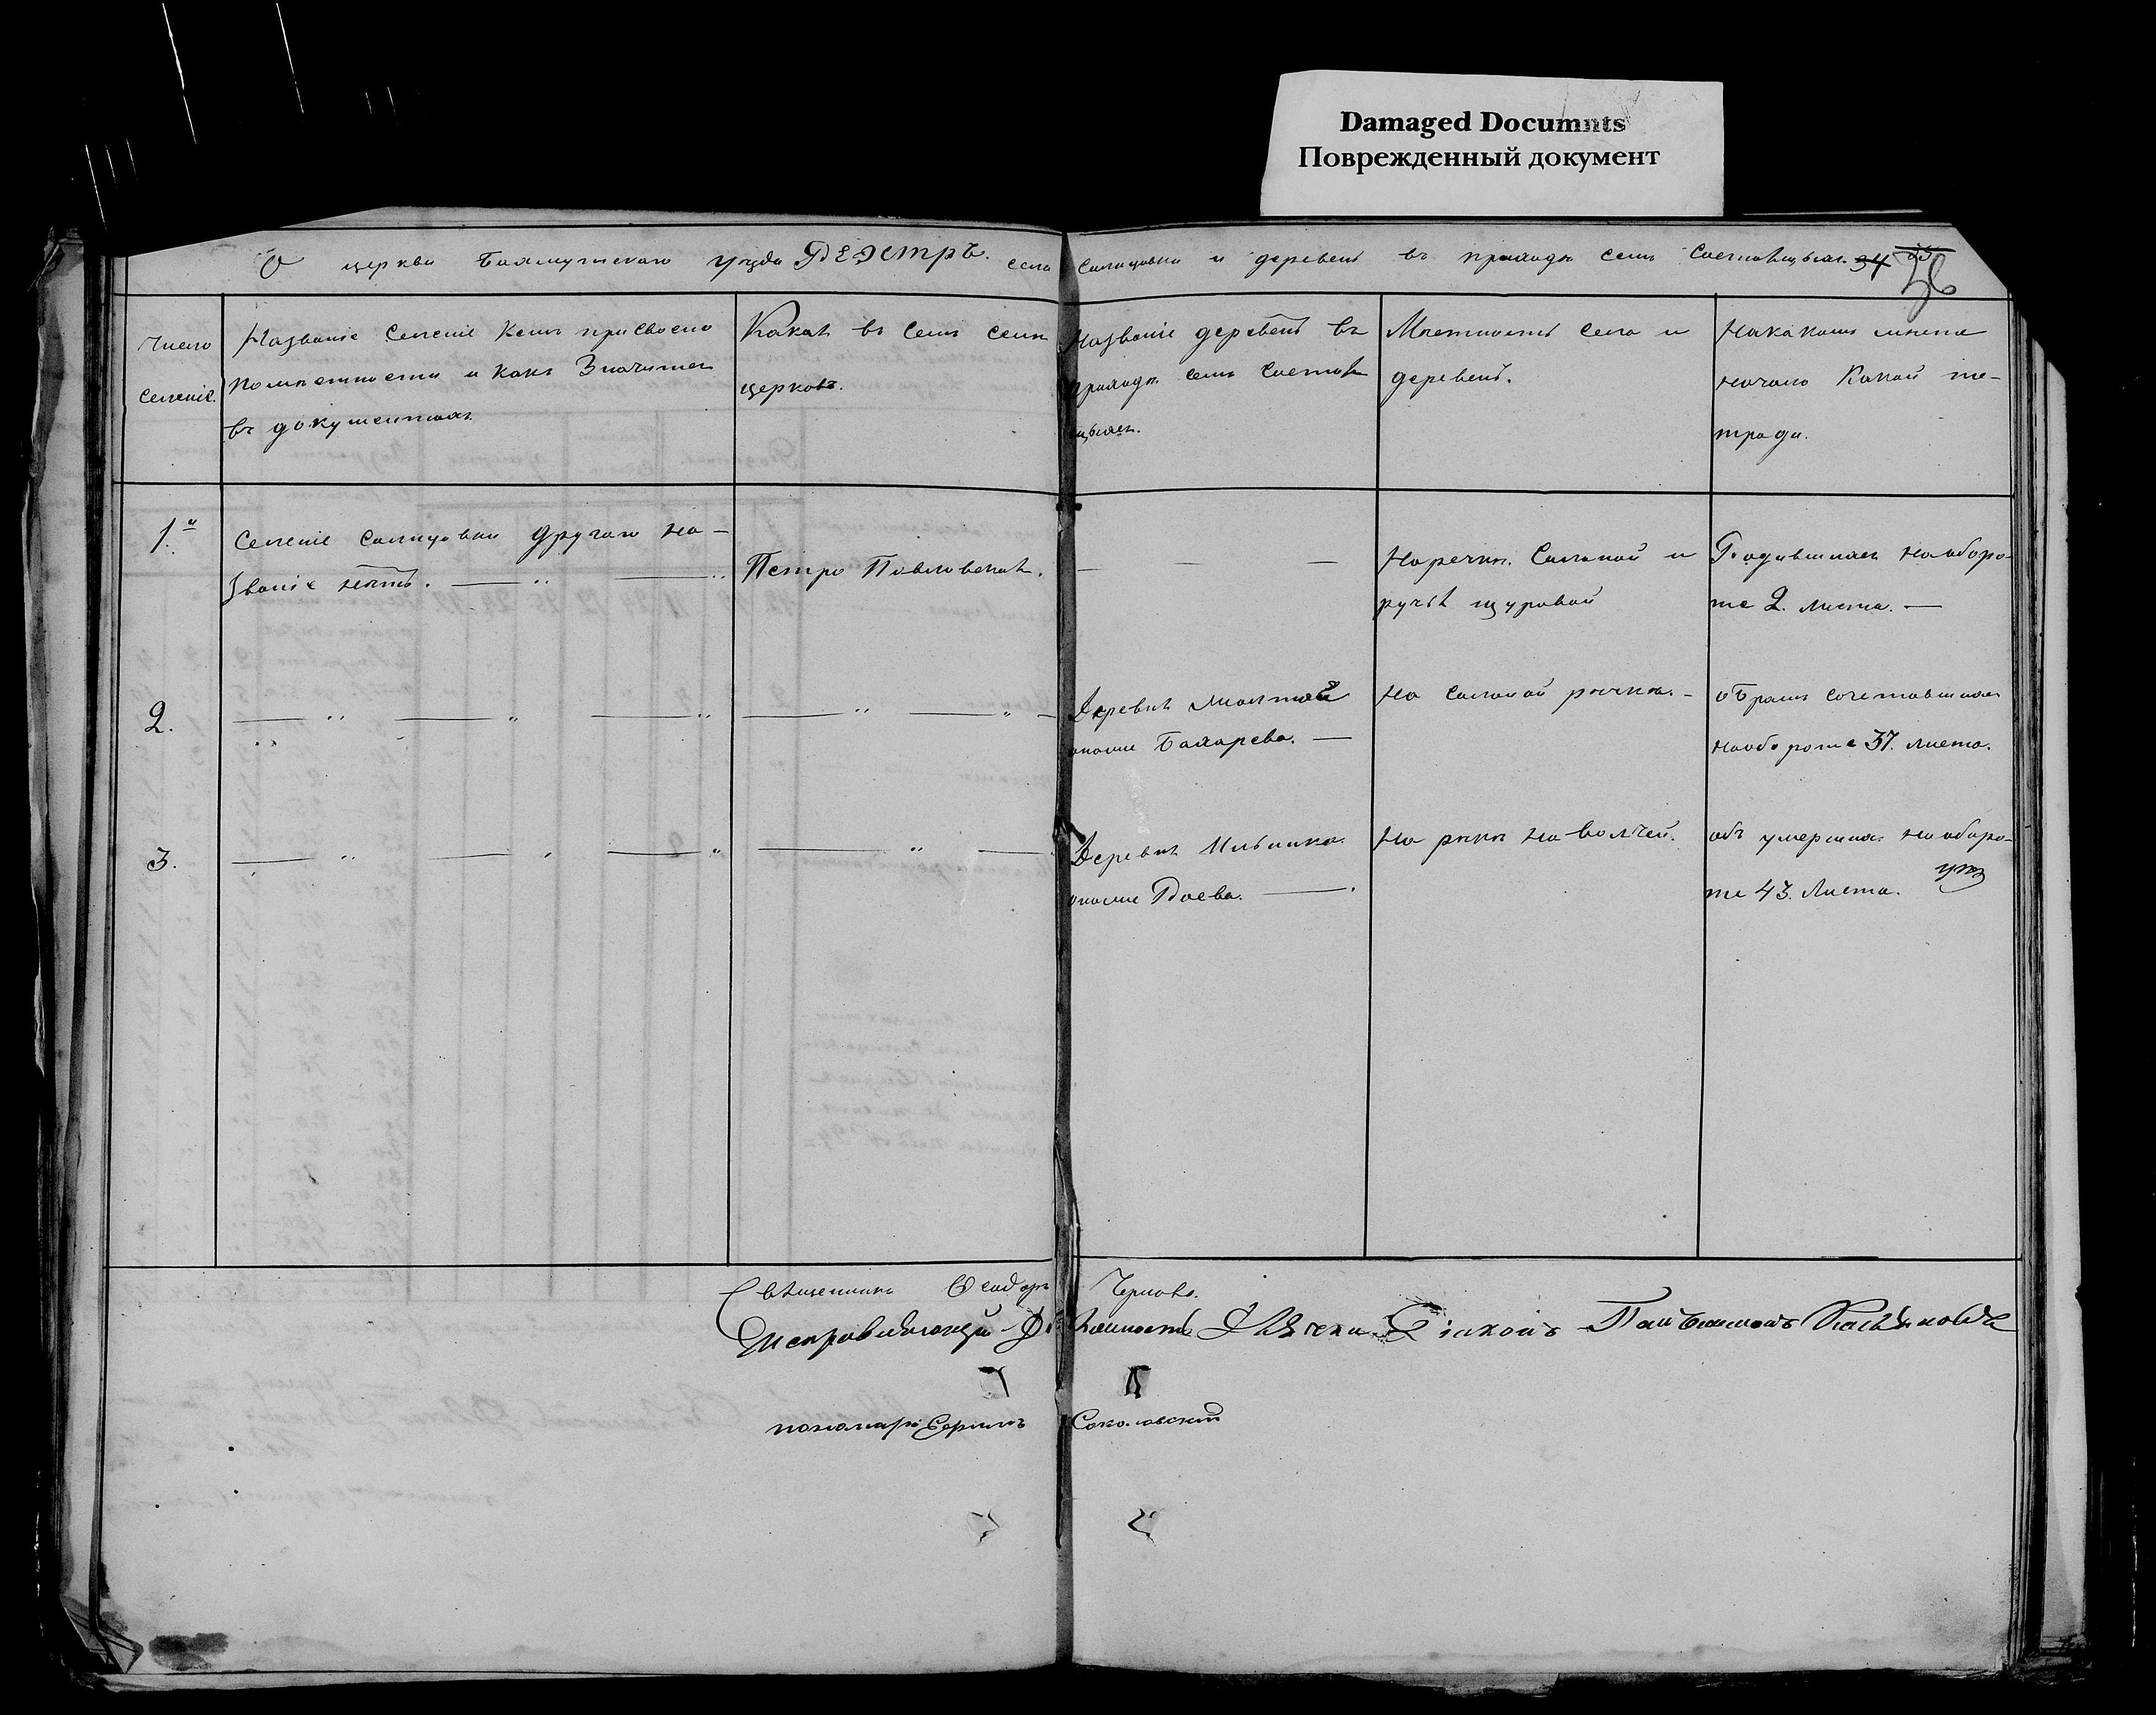 Damaged Documnts
Поврежденный документ
О церкви Бахмутскаго уезда Реэстръ. села Салицовки и деревень въ приходѣ семъ Состоящихъ. 34
36
Число
Селеніе.
Названіе Селеніе Кемъ присвоено
помѣстности и какъ Значится
въ документахъ
Какая въ Семъ Селѣ
церковь.
Названіе деревень въ
приходѣ семъ Состоя
щихъ.
Мѣстность Села и
деревень.
На какомъ мѣстѣ
начало Какой те-
тради.
1.
Селеніе Салицовки другаго на-
званіе нѣтъ.
Петро Павловская.
На речкѣ Соленой и
ручья щуровой
Родившихся на оборо-
те 2. листа.
2.
Деревня
Бахарева.
На Соленой рѣчкѣ.
о Бракѣ Сочетавшихся
на обороте 37. листа.
3.
Деревня Ильинка
Роева.
На рѣкѣ на Волчей.
объ умершихъ на оборо-
те 43. Листа.
Священникъ Ѳеодоръ
Исправляющій Должность Дьячка Діаконъ
пономарь Соколовский